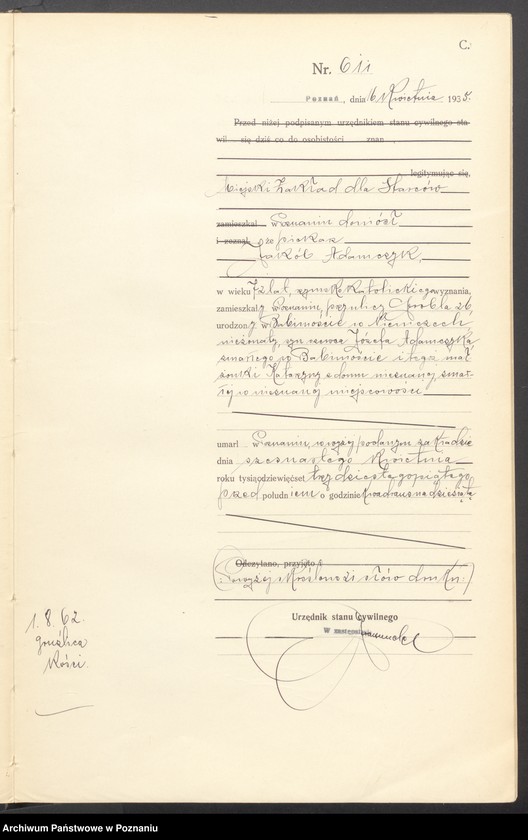 C.
Nr. 611
Poznań, dnia 16 Kwietnia 1935.
Przed niżej podpisanym urzędnikiem stanu cywilnego sta-
wił się dziś co do osobistości znan
legitymując się,
Miejski Zakład dla Starców
zamieszkał w Poznaniu doniósł
i zeznał, że piekarz
Jakób Adamczyk,
w wieku 72 lat, rzymskokatolickiego wyznania,
zamieszkały w Poznaniu, przy ulicy Grobla 26,
urodzony w Babimoście w Niemczech,
nieżonaty, syn szewca Józefa Adamczyka
zmarłego w Babimoście i tegoż mał-
żonki Katarzyny z domu nieznanej, zmar-
łej w nieznanej miejscowości
umarł w Poznaniu, w wyżej podanym zakładzie
dnia szesnastego Kwietnia
roku tysiącdziewięćset trzydziestegopiątego
przed południem o godzinie kwadrans na dziesiątą
Odczytano, przyjęto i
(Powyżej skreślono słów druku)
Urzędnik stanu cywilnego
W zastępstwie
1. 8. 62.
gruźlica
kości.
Archiwum Państwowe w Poznaniu